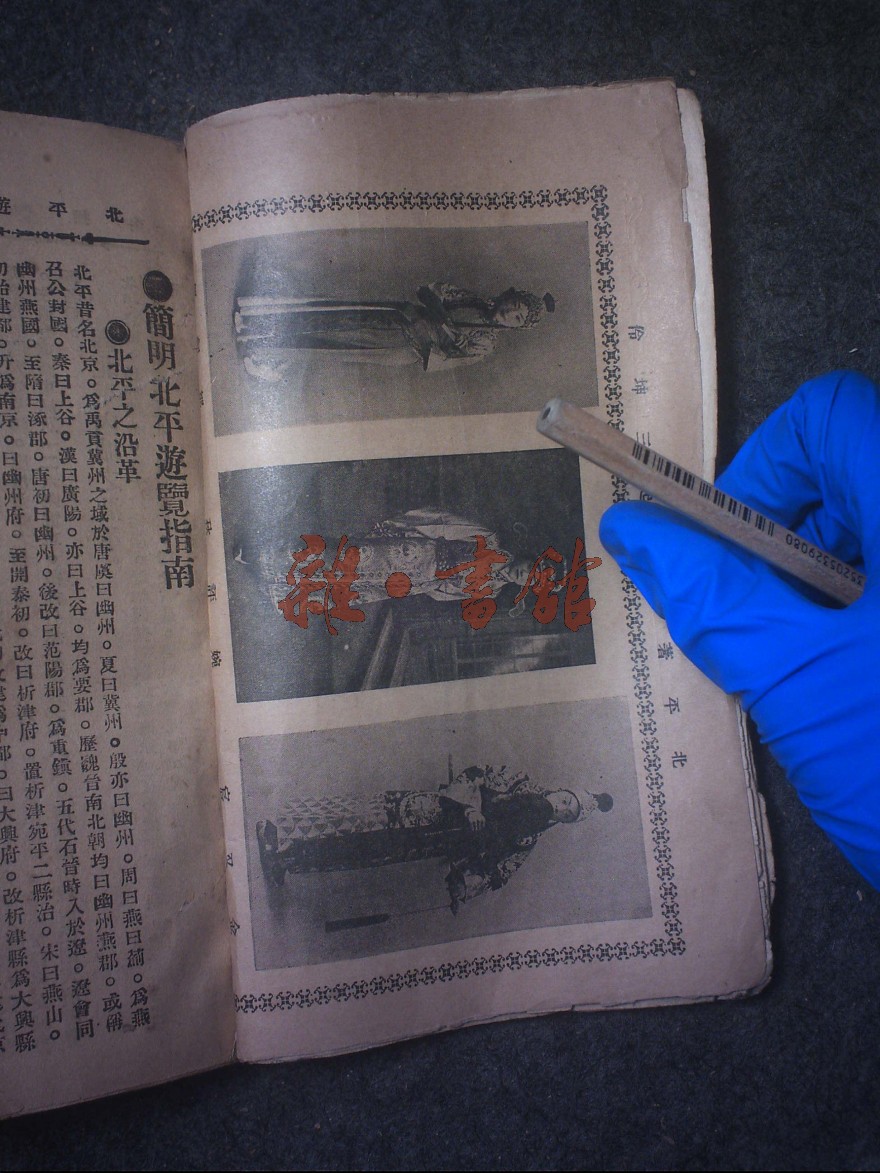 北平遊
簡明北平遊覽指南
北平之沿革
北平昔名北京。爲禹貢冀州之域於唐虞曰幽州。夏曰冀州。殷亦曰幽州。周曰燕曰薊。爲燕
召公封國。秦曰上谷。漢曰廣陽。亦曰上谷。均爲要郡。歷魏晉南北朝均曰幽州燕郡。或稱
幽州燕國。至隋曰涿郡。唐初曰幽州。後改曰范陽郡。爲重鎭。五代石晉時入於遼。遼會同
初始建都。升爲南京。曰幽州府。至開泰初。改曰析津府。置析津宛平二縣治。宋曰燕山。
曰大興府。改析津縣爲大興縣
北平著
三坤伶
雜·書館
35205329080